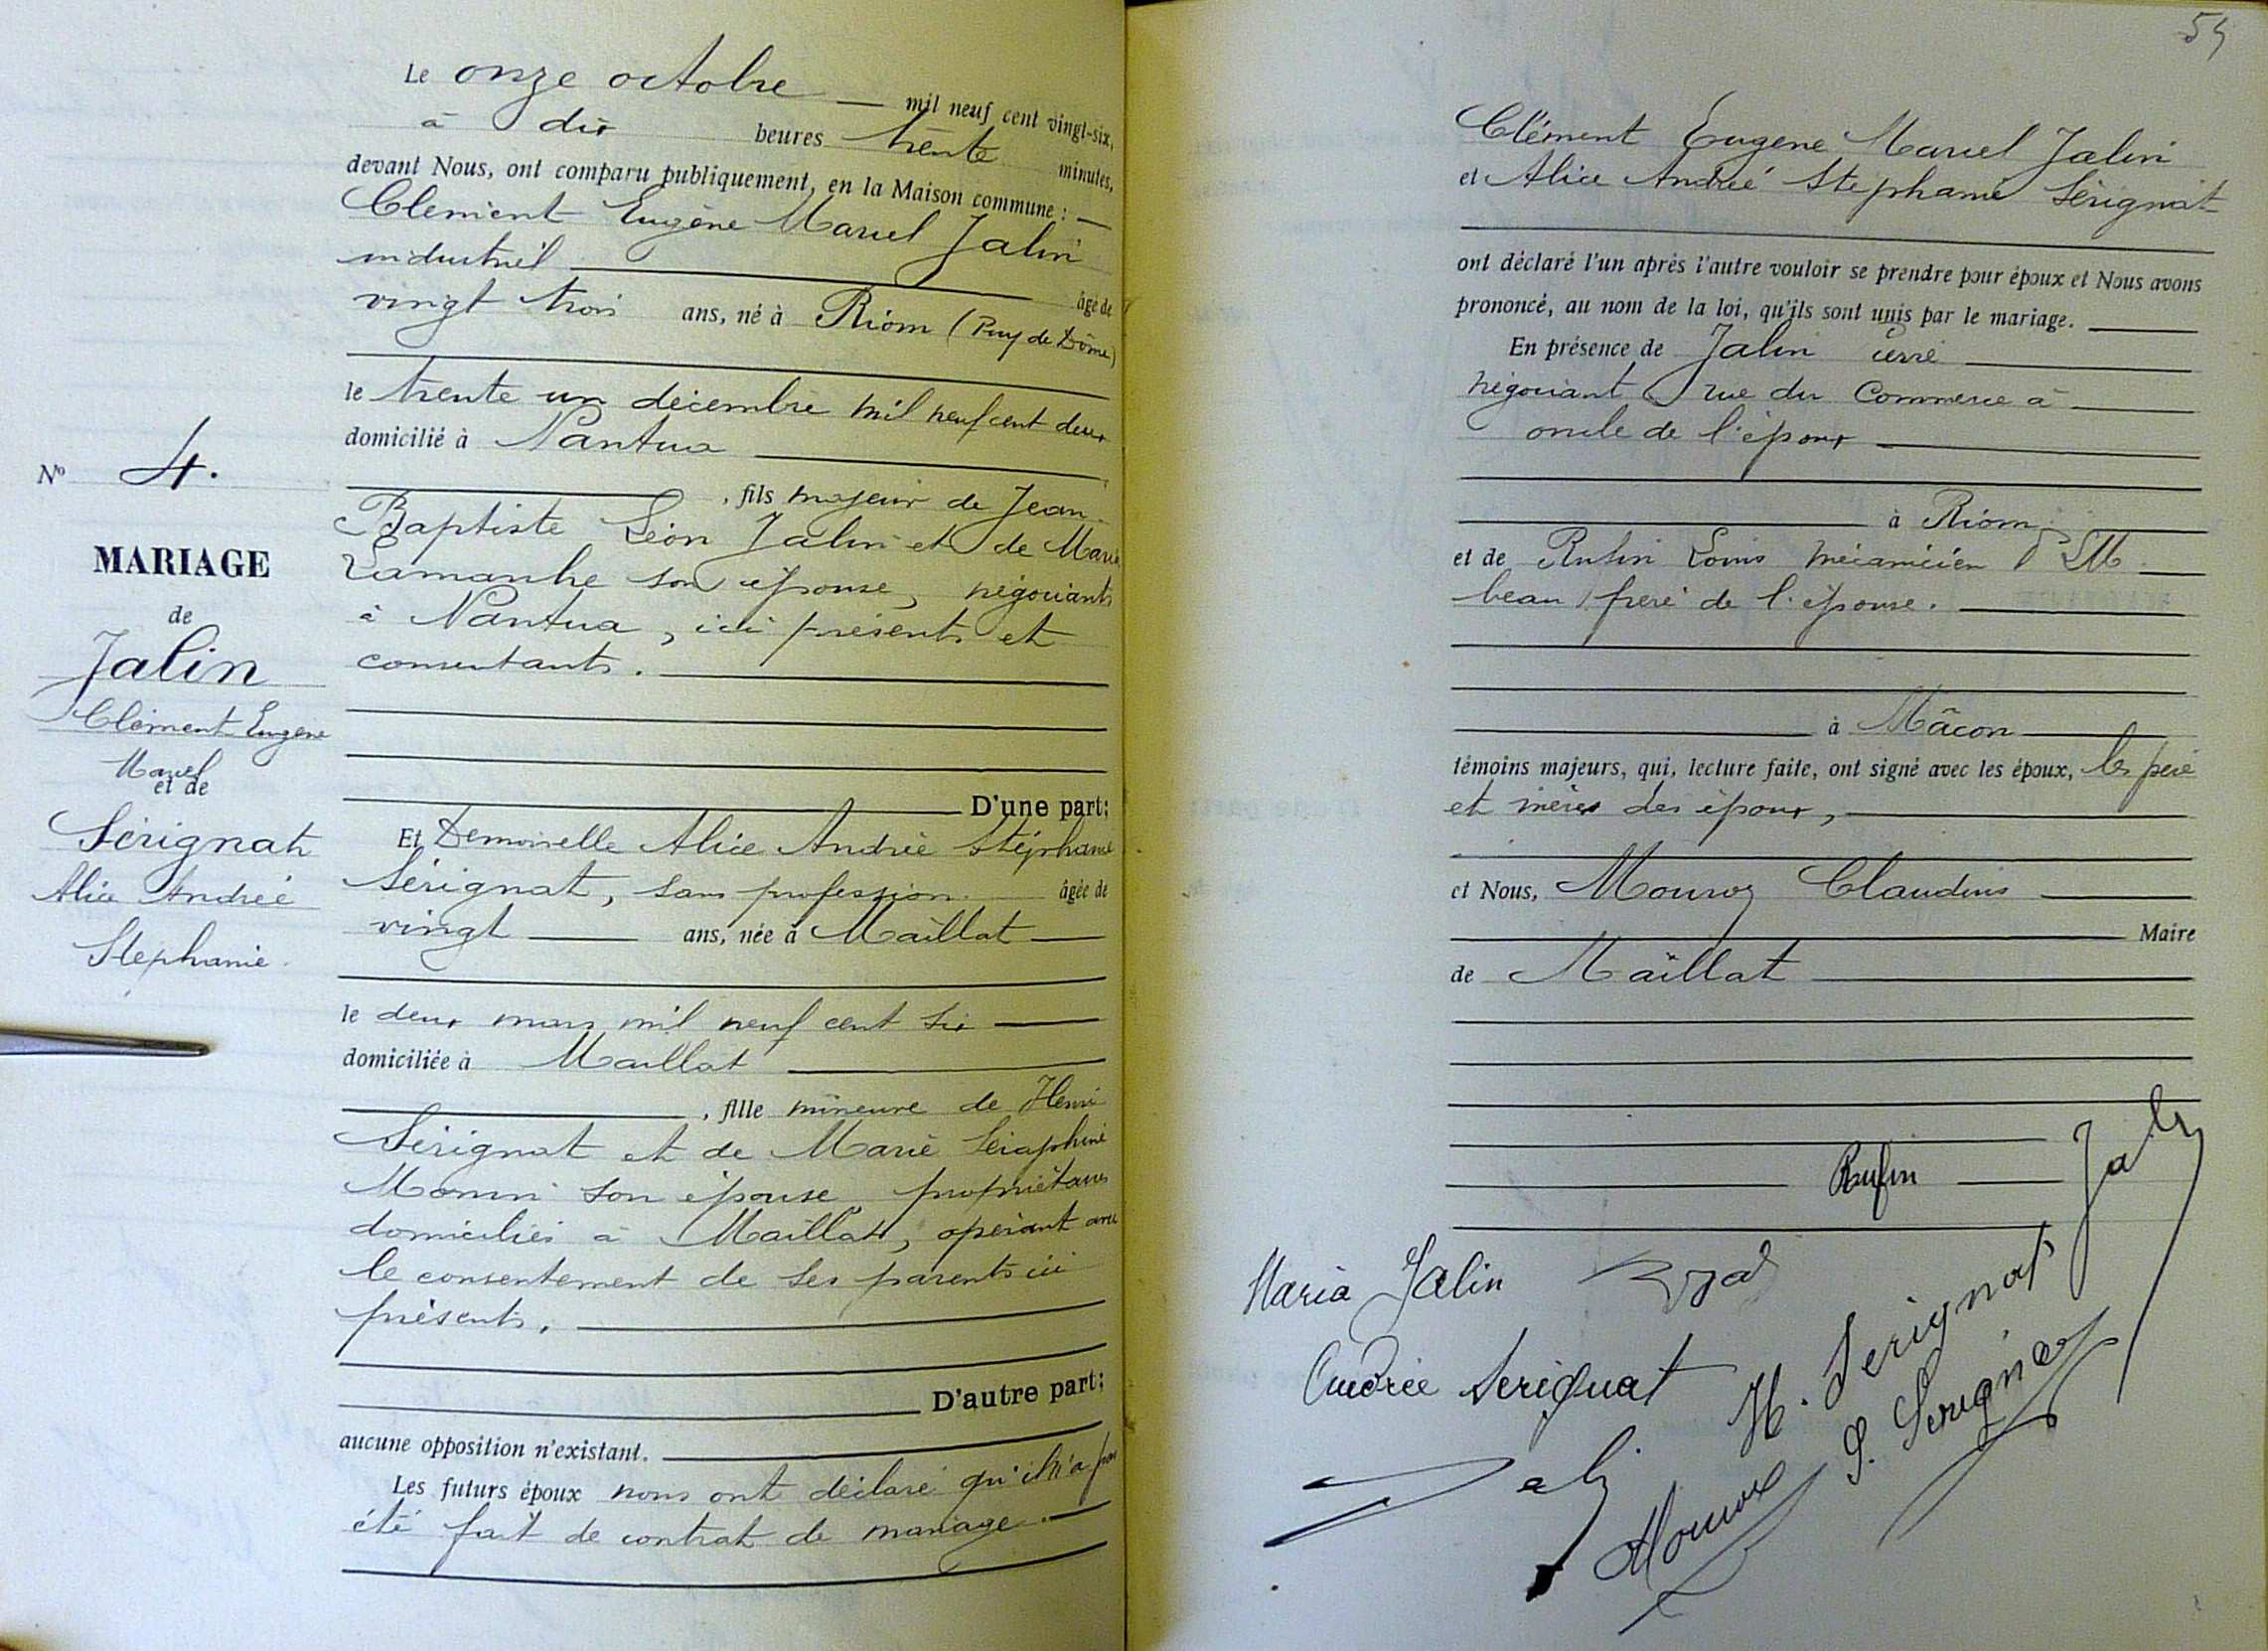 54
Le onze octobre — mil neuf cent vingt-six,
à dix heures trente minutes,
devant Nous, ont comparu publiquement, en la Maison commune : —
Clément Eugène Marcel Jalin
industriel — âgé de
vingt trois ans, né à Riom (Puy de Dôme)
le trente un décembre mil neuf cent deux
domicilié à Nantua —
, fils majeur de Jean-
Baptiste Léon Jalin et de Marie
son épouse, négociants
à Nantua, ici présents et
consentants. —
D'une part;
Et Demoiselle Alice Andrée Stéphanie
Sérignat, sans profession. âgée de
vingt — ans, née à Maillat —
le deux mars mil neuf cent six —
domiciliée à Maillat —
, fille mineure de Henri
Sérignat et de Marie Séraphine
Monin son épouse propriétaires
domiciliés à Maillat, opérant avec
le consentement de ses parents ici
présents. —
D'autre part;
aucune opposition n'existant. —
Les futurs époux nous ont déclaré qu'il n'a pas
été fait de contrat de mariage. —
No 4.
MARIAGE
de
Jalin
Clément Eugène
Marcel
et de
Sérignat
Alice Andrée
Stéphanie.
Clément Eugène Marcel Jalin
et Alice Andrée Stéphanie Sérignat
ont déclaré l'un après l'autre vouloir se prendre pour époux et Nous avons
prononcé, au nom de la loi, qu'ils sont unis par le mariage. —
En présence de Jalin —
négociant rue du Commerce à —
oncle de l'époux —
à Riom —
et de Rufin Louis mécanicien —
beau frère de l'épouse. —
à Mâcon —
témoins majeurs, qui, lecture faite, ont signé avec les époux, les père
et mères des époux, —
et Nous, Mouroz Claudius —
Maire
de Maillat —
Rufin
Jalin
Maria Jalin
Andrée Serignat
H. Serignat
S. Serignat
Jalin
Mouroz